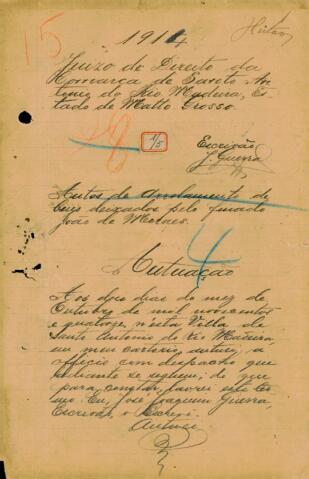 15
1914
Juizo de Direito da
Comarca de Santo An-
tonio do Rio Madeira, Es-
tado de Matto Grosso.
28
1/5
Escrivão
J. Guerra
Autos de Arrolamento de
bens deixados pelo finado
João de Moraes.
4
Autuação
Aos dois dias do mez de
Outubro de mil novecentos
e quatorze, n'esta Villa de
Santo Antonio do Rio Madeira,
em meu cartorio, autuei, o
officio com despacho que
adiante se seguem; do que
para constar, lavrei este ter-
mo. Eu, José Joaquim Guerra,
Escrivão, o Escrevi.